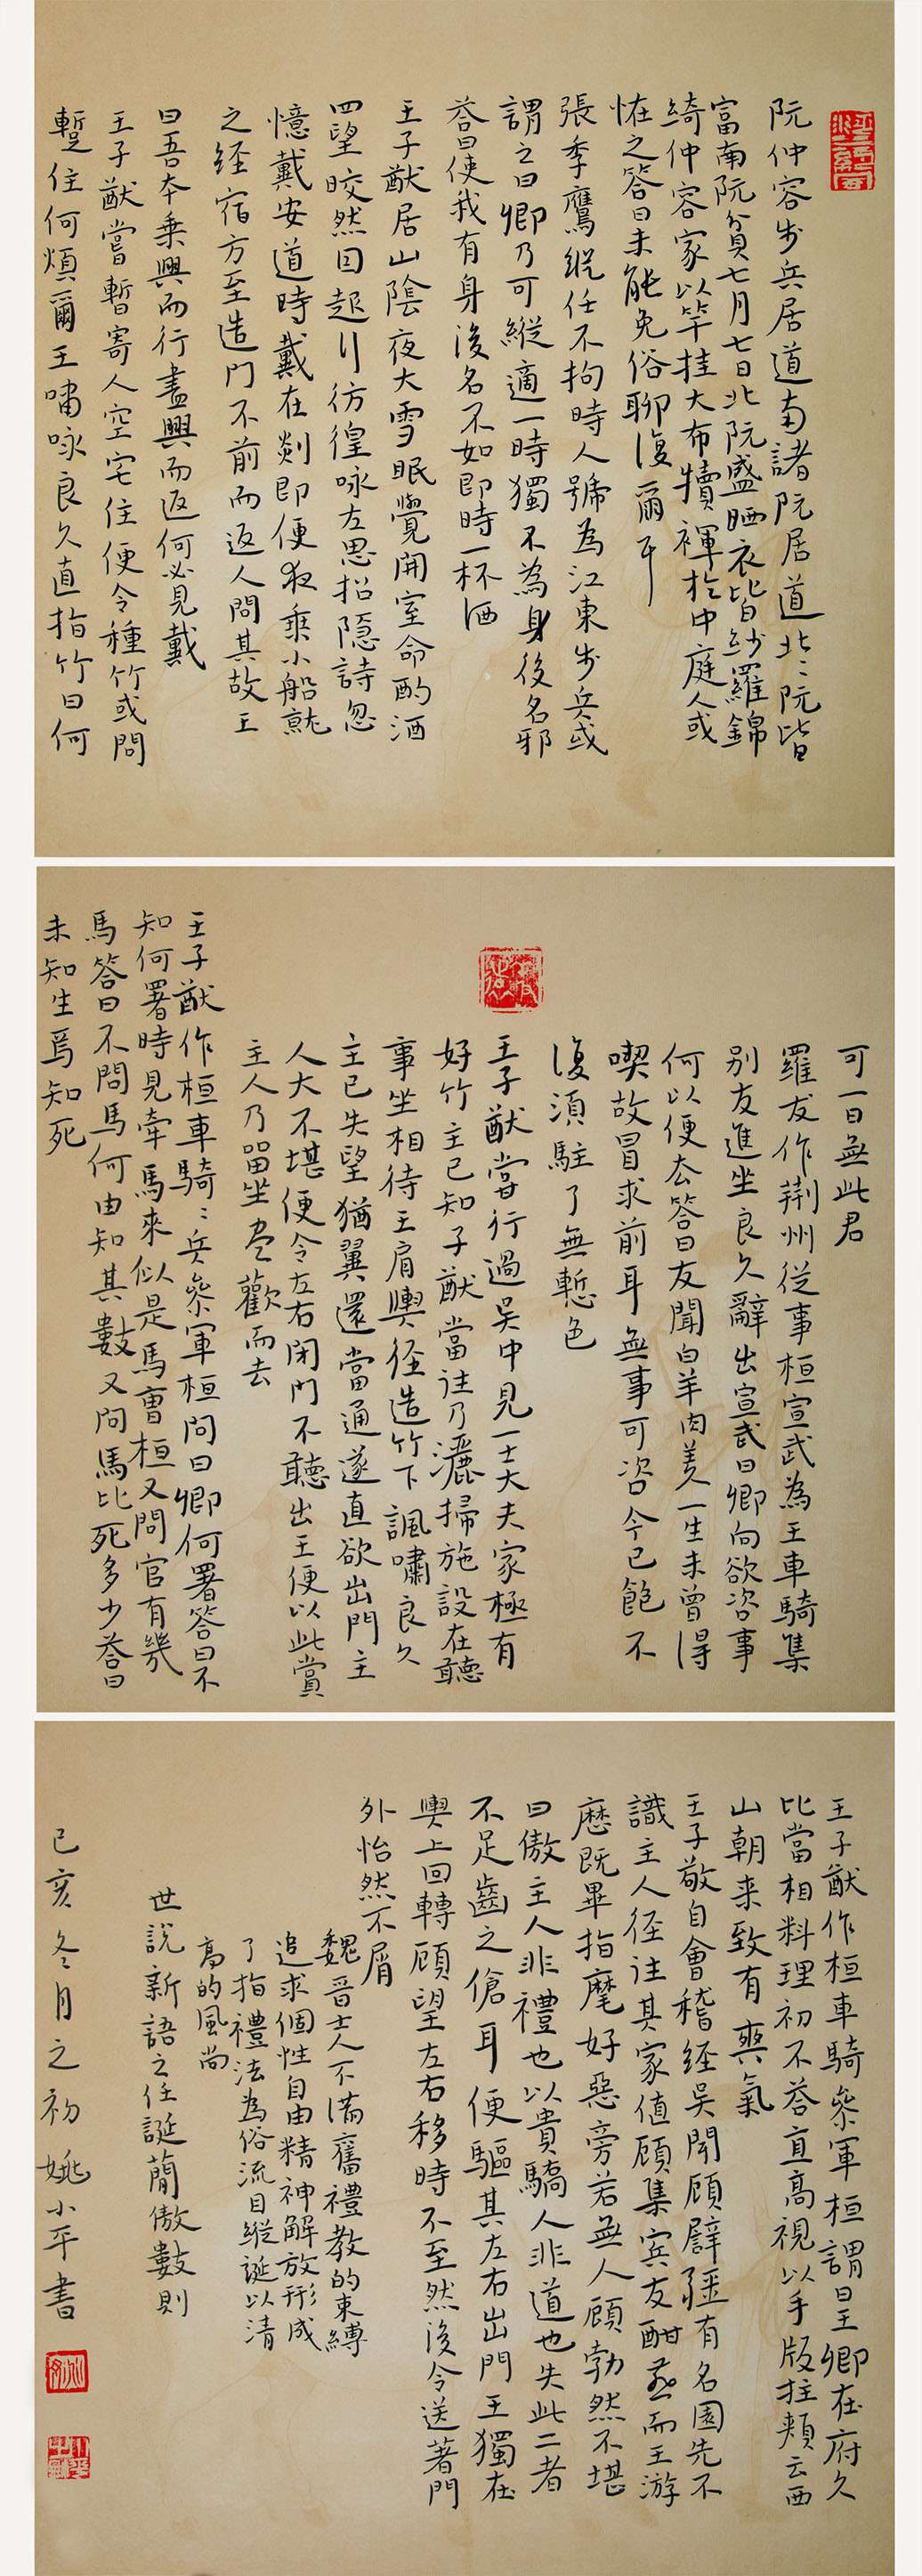 阮仲容步兵居道南諸阮居道北〻阮皆
富南阮貧七月七日北阮盛晒衣皆紗羅錦
綺仲容家以竿挂大布犢褌於中庭人或
恠之答曰未能免俗聊復爾耳
張季鷹縱任不拘時人號為江東步兵或
謂之曰卿乃可縱適一時獨不為身後名邪
答曰使我有身後名不如即時一杯酒
王子猷居山陰夜大雪眠覺開室命酌酒
四望皎然因起行彷徨咏左思招隱詩忽
憶戴安道時戴在剡即便夜乗小船就
之經宿方至造門不前而返人問其故王
曰吾本乗興而行盡興而返何必見戴
王子猷嘗暫寄人空宅住便令種竹或問
蹔住何煩爾王嘯咏良久直指竹曰何
可一日無此君
羅友作荆州從事桓宣武為王車騎集
别友進坐良久辭出宣武曰卿向欲咨事
何以便去答曰友聞白羊肉美一生未曾得
喫故冒求前耳無事可咨今已飽不
復須駐了無慙色
王子猷嘗行過吴中見一士大夫家極有
好竹主已知子猷當往乃灑掃施設在聽
事坐相待王肩輿徑造竹下諷嘯良久
主已失望猶冀還當通遂直欲出門主
人大不堪便令左右閉門不聽出王便以此賞
主人乃留坐盡歡而去
王子猷作桓車騎〻兵參軍桓問曰卿何署答曰不
知何署時見牽馬來似是馬曹桓又問官有幾
馬答曰不問馬何由知其數又問馬比死多少答曰
未知生焉知死
王子猷作桓車騎參軍桓謂曰王卿在府久
比當相料理初不答直高視以手版拄頰云西
山朝来致有爽氣
王子敬自會稽經吴聞顧辟疆有名園先不
識主人徑往其家值顧集賓友酣燕而王游
歷既畢指麾好惡旁若無人顧勃然不堪
曰傲主人非禮也以貴驕人非道也失此二者
不足齒之傖耳便驅其左右出門王獨在
輿上回轉顧望左右移時不至然後令送著門
外怡然不屑
魏晋士人不滿舊禮教的束縛
追求個性自由精神解放形成
了指禮法為俗流目縱誕以清
高的風尚
世說新語之任誕簡傲數則
己亥冬月之初姚小平書